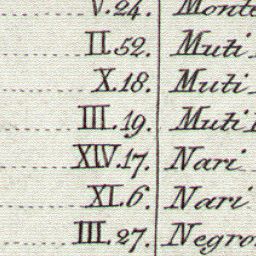 V.24. Monte
II.52. Muti
X.18. Muti
III.19. Muti
XIV.17. Nari
XI.6. Nari
III.27. Negro